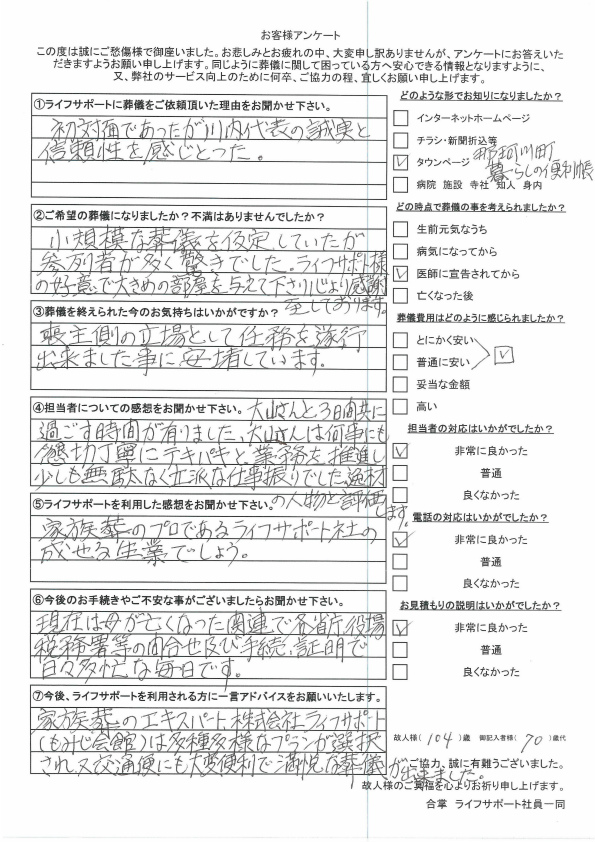 お客様アンケート
この度は誠にご愁傷様で御座いました。お悲しみとお疲れの中、大変申し訳ありませんが、アンケートにお答えいた
だきますようお願い申し上げます。同じように葬儀に関して困っている方へ安心できる情報となりますように、
又、弊社のサービス向上のために何卒、ご協力の程、宜しくお願い申し上げます。
①ライフサポートに葬儀をご依頼頂いた理由をお聞かせ下さい。
初対面であったが川内代表の誠実と
信頼性を感じとった。
②ご希望の葬儀になりましたか？不満はありませんでしたか？
小規模な葬儀を仮定していたが
参列者が多く驚きでした。ライフサポート様
の好意で大きめの部屋を与えて下さり心より感謝
至しております。
③葬儀を終えられた今のお気持ちはいかがですか？
喪主側の立場として任務を遂行
出来ました事に安堵しています。
④担当者についての感想をお聞かせ下さい。大山さんと3日間共に
過ごす時間が有りました、大山さんは何事にも
懇切丁寧にテキパキと業務を推進し
少しも無駄なく立派な仕事振りでした。逸材
の人物と評価
します。
⑤ライフサポートを利用した感想をお聞かせ下さい。
家族葬のプロであるライフサポート社の
成せる生業でしょう。
⑥今後のお手続きやご不安な事がございましたらお聞かせ下さい。
現在は母が亡くなった関連で各省庁、役場
税務署等の問合せ及び手続、証明で
日々多忙な毎日です。
⑦今後、ライフサポートを利用される方に一言アドバイスをお願いいたします。
家族葬のエキスパート株式会社ライフサポート
(もみじ会館)は多種多様なプランが選択
され又交通便にも大変便利で満悦な葬儀が出来ました。
どのような形でお知りになりましたか？
インターネットホームページ
チラシ・新聞折込等
✓ タウンページ 那珂川町
暮らしの便利帳
病院 施設 寺社 知人 身内
どの時点で葬儀の事を考えられましたか？
生前元気なうち
病気になってから
✓ 医師に宣告されてから
亡くなった後
葬儀費用はどのように感じられましたか？
とにかく安い
✓
普通に安い
妥当な金額
高い
担当者の対応はいかがでしたか？
✓ 非常に良かった
普通
良くなかった
電話の対応はいかがでしたか？
✓ 非常に良かった
普通
良くなかった
お見積もりの説明はいかがでしたか？
✓ 非常に良かった
普通
良くなかった
故人様(104)歳 御記入者様(70)歳代
ご協力、誠に有難うございました。
故人様のご冥福を心よりお祈り申し上げます。
合掌 ライフサポート社員一同